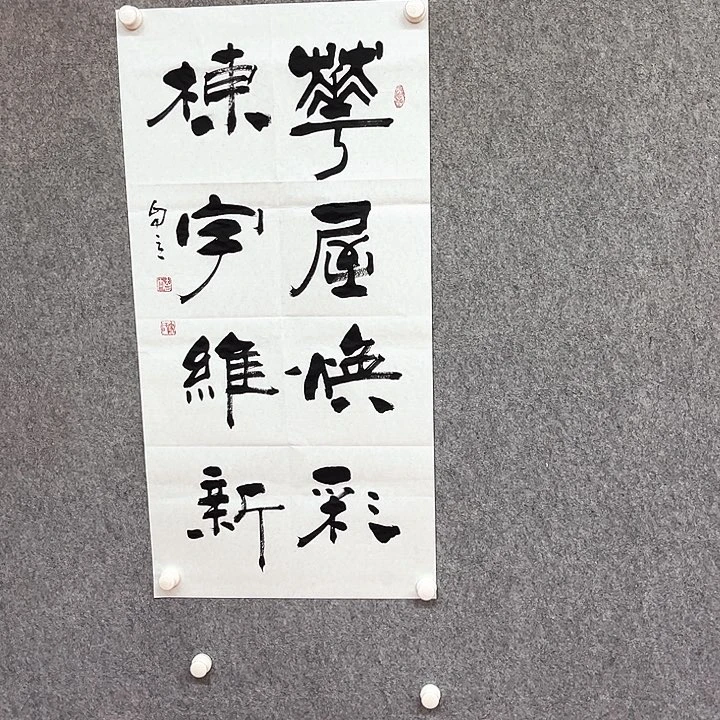 華屋煥彩
棟宇維新